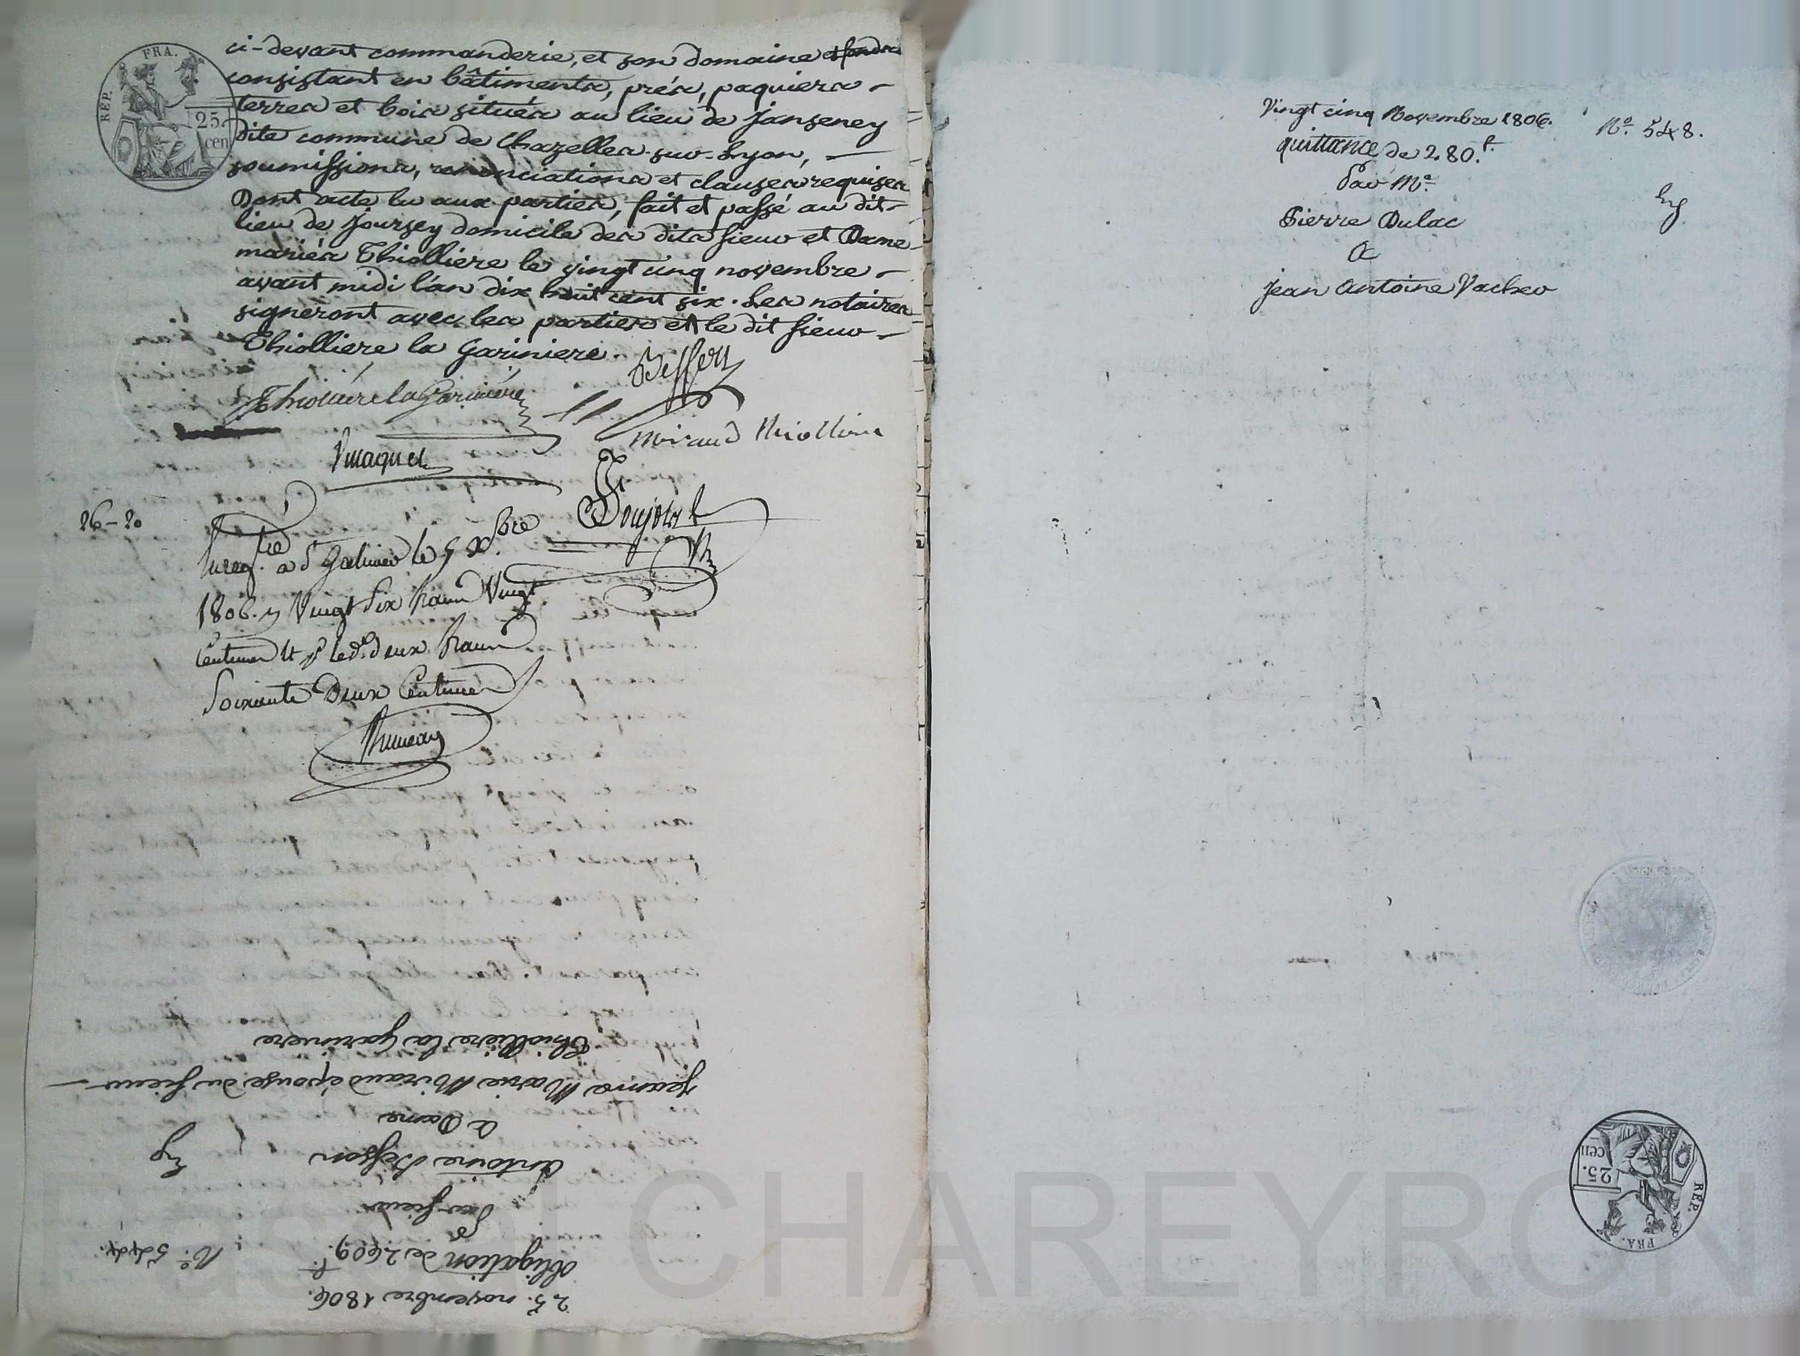 ci-devant commanderie, et son domaine
consistant en bâtiments, prés, paquiers
terres et bois situés au lieu de Janzeney
dite commune de Chazelles-sur-Lyon,
soumissions, renonciations et clauses requises
Dont acte lu aux parties, fait et passé au dit
lieu de Jourzey domicile des dits sieur et Dame
mariés Thiolliere le vingt cinq novembre
avant midi l'an dix huit cent six. Les notaires
signeront avec les parties et le dit sieur
Thiolliere la Gariniere.
REP. FRA.
25.
cen
Thiolliere la Garinière
miraud thiolliere
26-20
à St Galmier le 5 Xbre
1806. Vingt Six francs Vingt
Centimes deux francs
Soixante Deux Centimes
25. novembre 1806.
obligation de 2609f.
N°. 544.
Par sieur
antoine Besson
a Dame
jeanne Marie Miraud épouse du sieur
Thiolliere la gariniere
Vingt cinq Novembre 1806.
N°. 548.
quittance de 280.f
Par Me.
Pierre Dulac
a
Jean Antoine Vacher
REP. FRA.
25.
cen
Pascal CHAREYRON